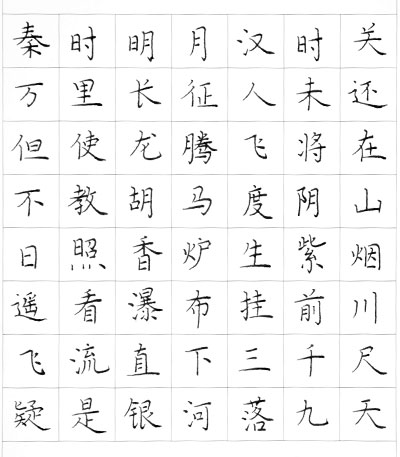 秦时明月汉时关
万里长征人未还
但使龙腾飞将在
不教胡马度阴山
日照香炉生紫烟
遥看瀑布挂前川
飞流直下三千尺
疑是银河落九天